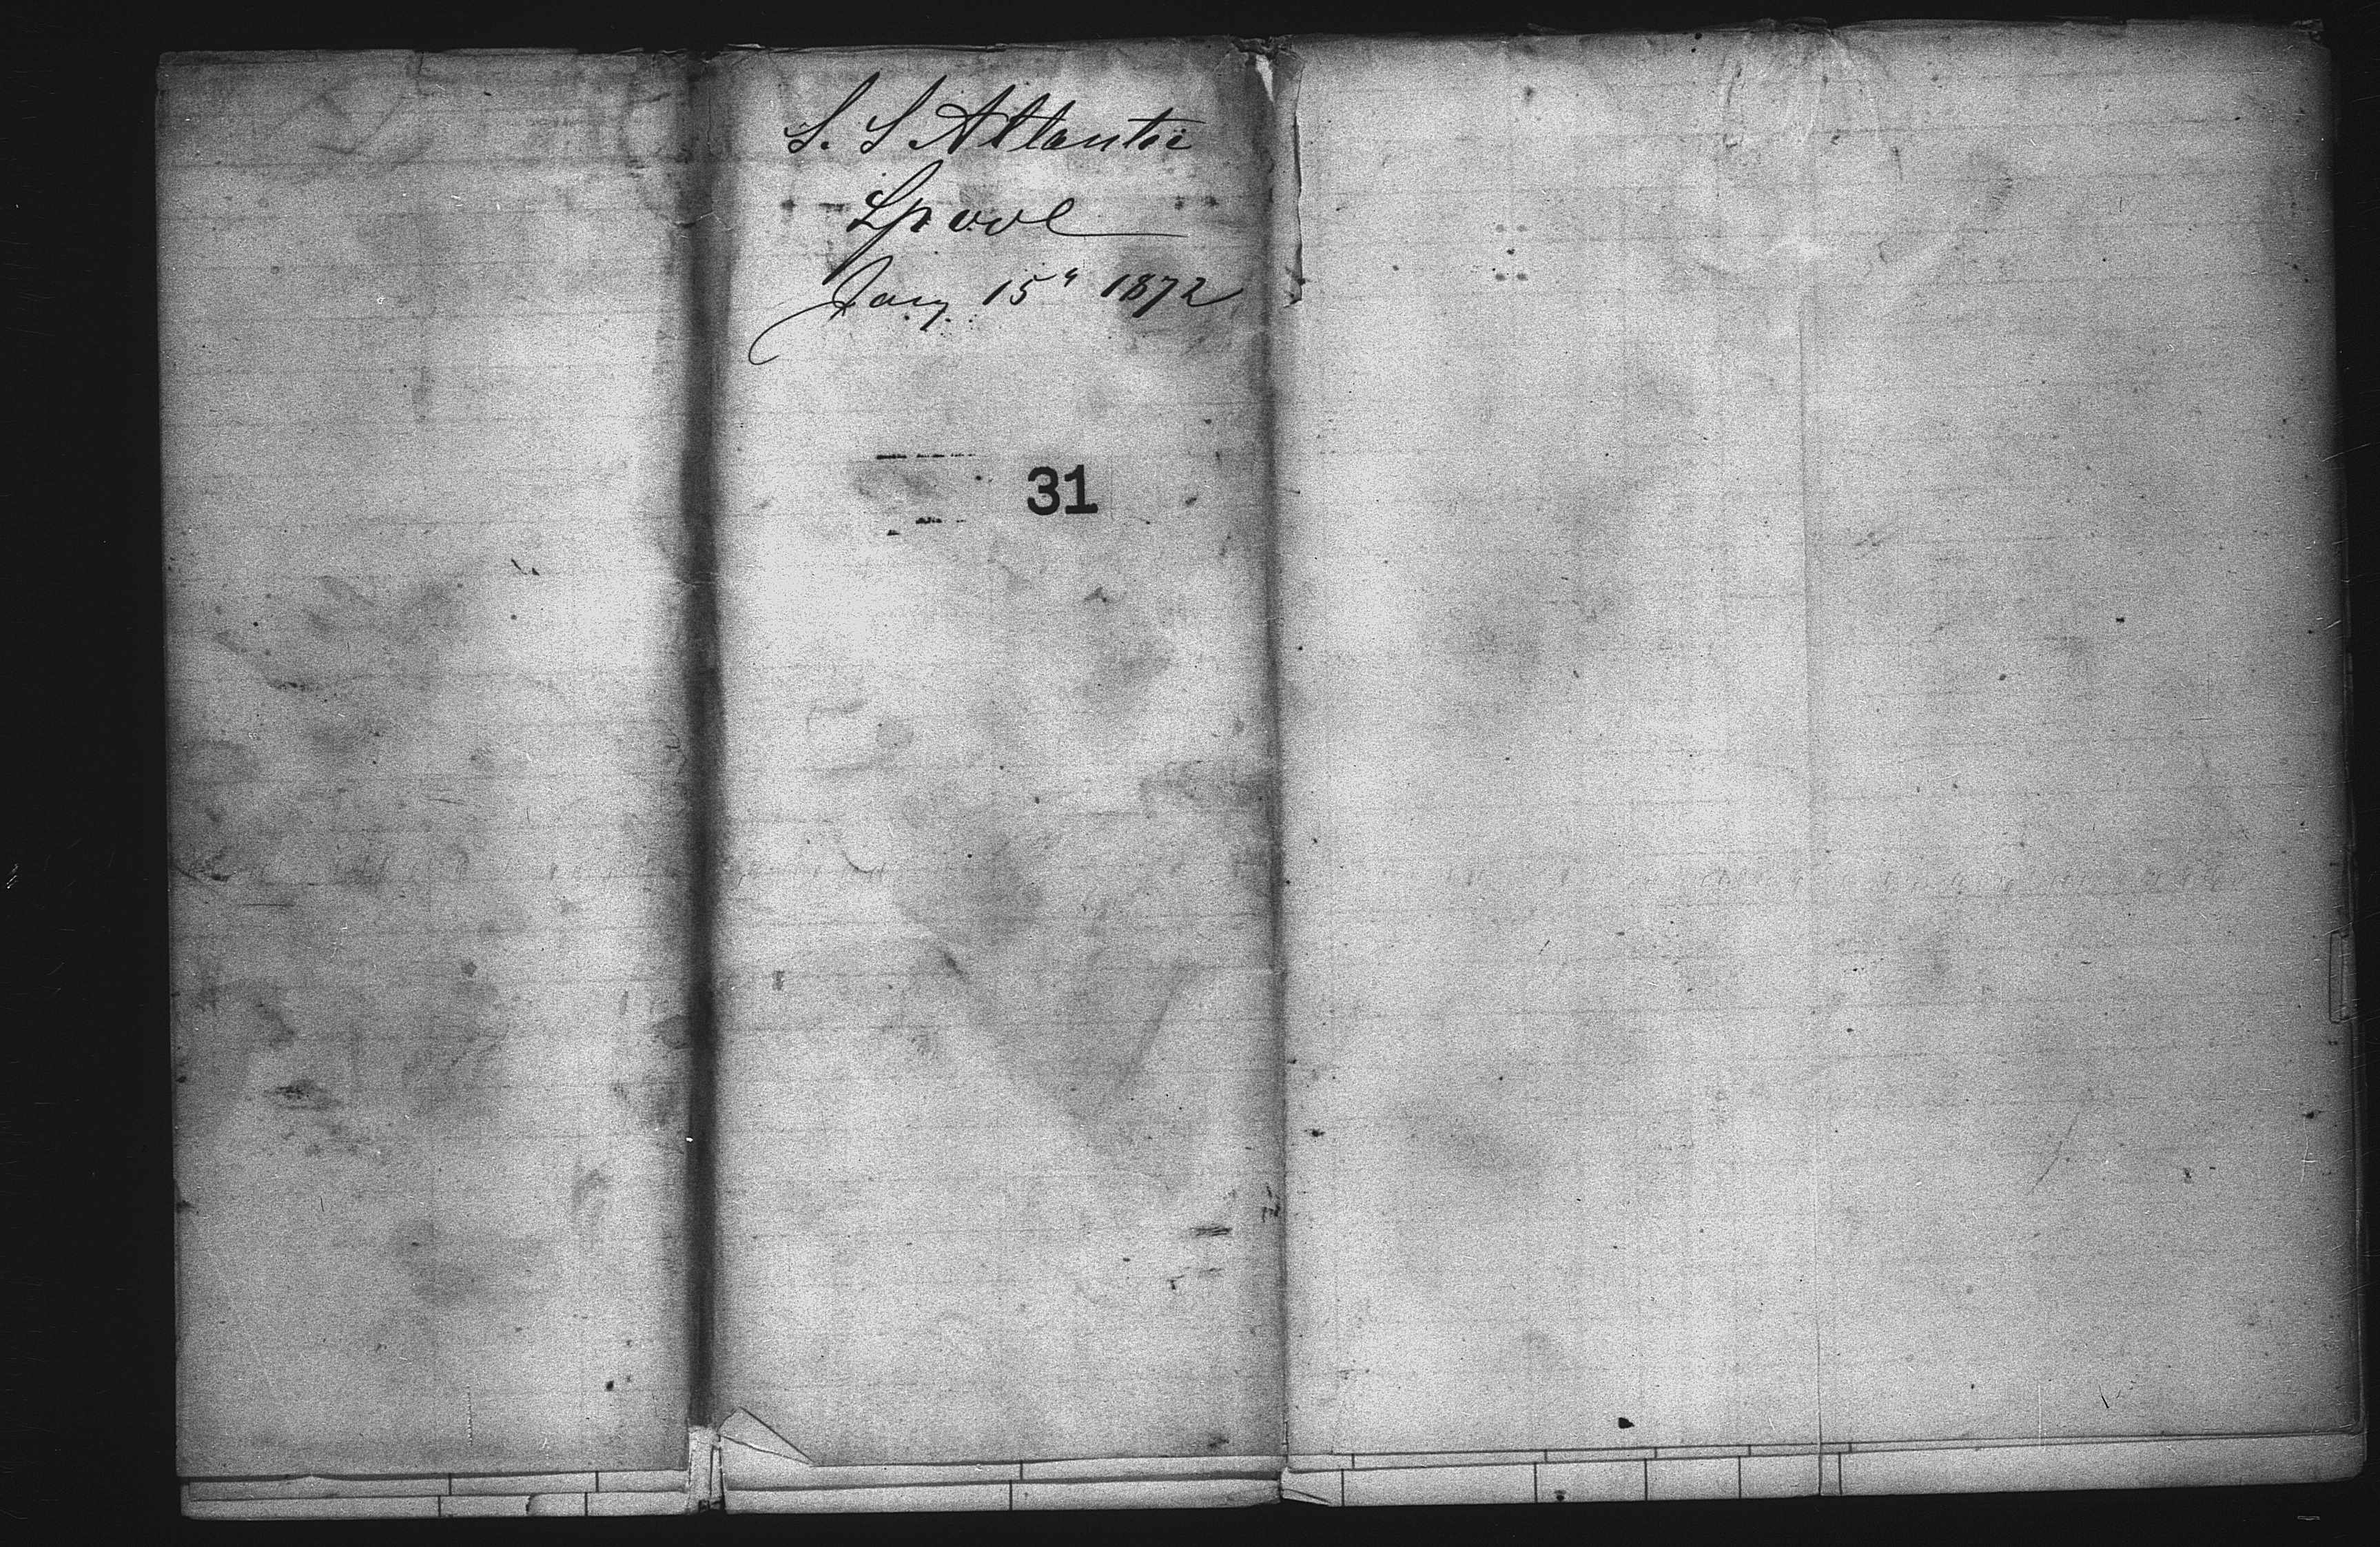 S. S Atlantic
Lpool
Jany 15" 1872
31